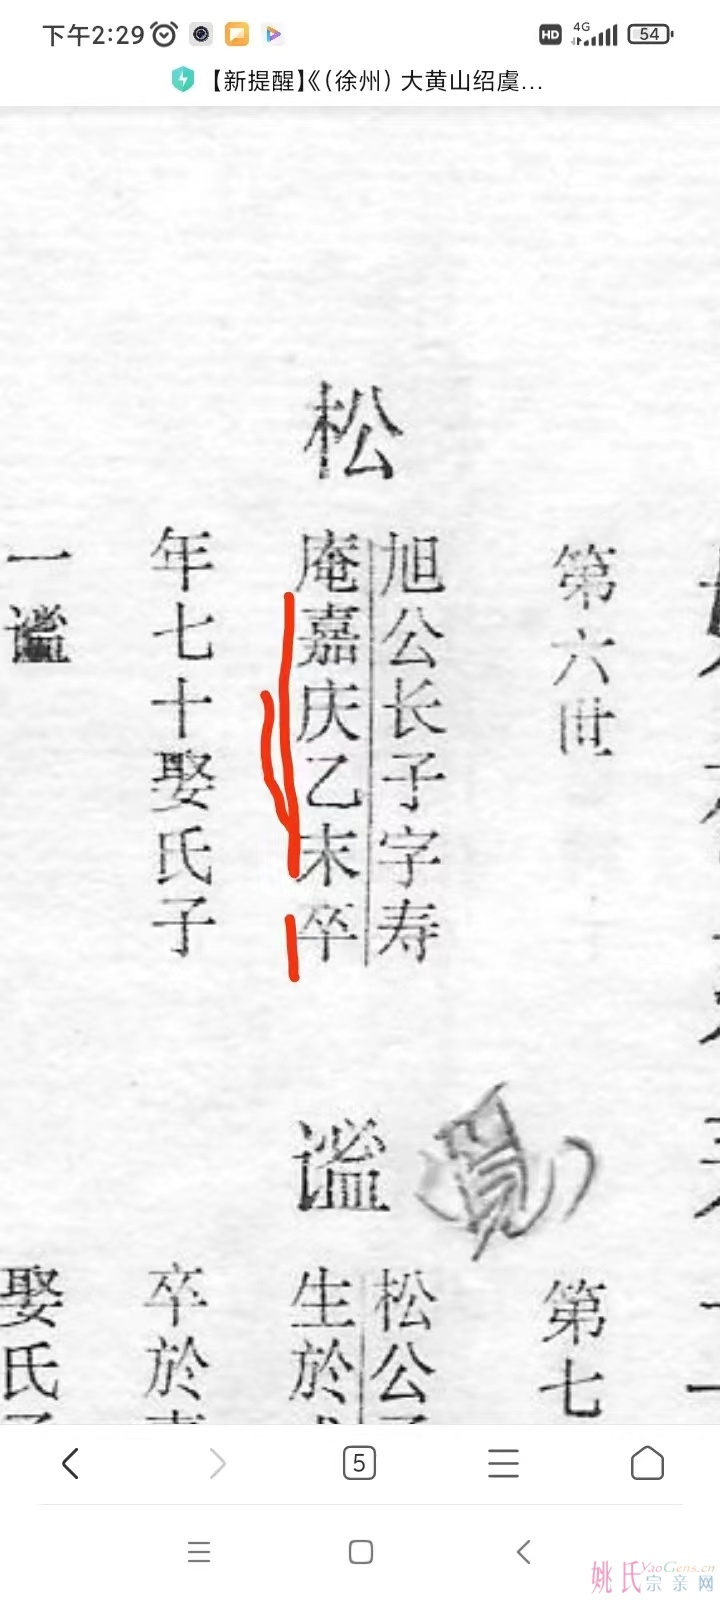 下午2:29
HD 4G 54
【新提醒】《（徐州）大黄山绍虞...
第六世
松
旭公长子字寿
庵嘉庆乙末卒
年七十娶氏子
一谧
第七
谧
松公
生於
卒於
娶氏
5
姚氏宗亲网
YaoGens.cn